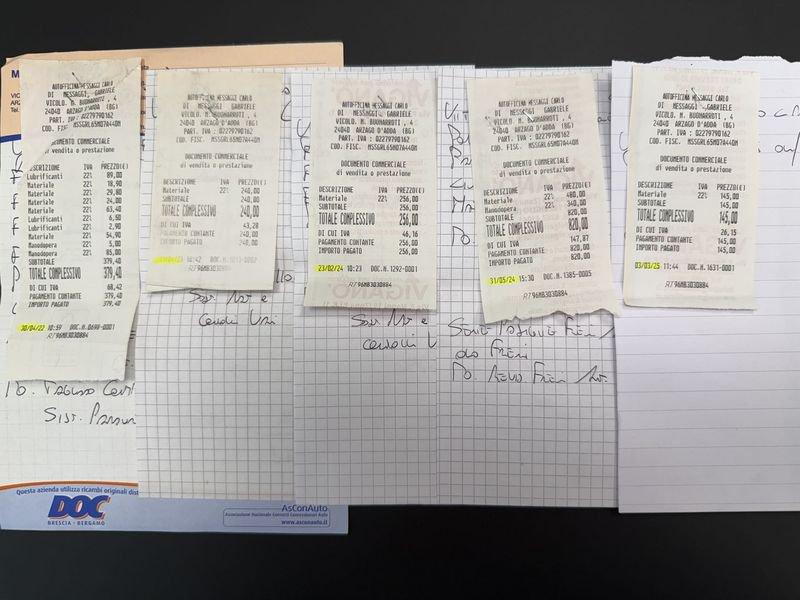 AUTOFFICINA MESSAGGI CARLO
DI MESSAGGI, GABRIELE
VICOLO. M. BUONARROTI , 4
24040 ARZAGO D'ADDA (BG)
PART. IVA : 02279790162
COD. FISC. MSSGRL65M07A440M
DOCUMENTO COMMERCIALE
di vendita o prestazione
DESCRIZIONE IVA PREZZO(€)
Lubrificanti 22% 89,00
Materiale 22% 18,90
Materiale 22% 29,80
Materiale 22% 24,00
Materiale 22% 63,40
Lubrificanti 22% 6,50
Lubrificanti 22% 2,90
Materiale 22% 54,90
Manodopera 22% 5,00
Manodopera 22% 85,00
SUBTOTALE 379,40
TOTALE COMPLESSIVO 379,40
DI CUI IVA 68,42
PAGAMENTO CONTANTE 379,40
IMPORTO PAGATO 379,40
30/04/22 10:59 DOC.N.0698-0001
RT 96MB3030884
AUTOFFICINA MESSAGGI CARLO
DI MESSAGGI, GABRIELE
VICOLO. M. BUONARROTI , 4
24040 ARZAGO D'ADDA (BG)
PART. IVA : 02279790162
COD. FISC. MSSGRL65M07A440M
DOCUMENTO COMMERCIALE
di vendita o prestazione
DESCRIZIONE IVA PREZZO(€)
Materiale 22% 240,00
SUBTOTALE 240,00
TOTALE COMPLESSIVO 240,00
DI CUI IVA 43,28
PAGAMENTO CONTANTE 240,00
IMPORTO PAGATO 240,00
RT 96MB3030884
AUTOFFICINA MESSAGGI CARLO
DI MESSAGGI, GABRIELE
VICOLO. M. BUONARROTI , 4
24040 ARZAGO D'ADDA (BG)
PART. IVA : 02279790162
COD. FISC. MSSGRL65M07A440M
DOCUMENTO COMMERCIALE
di vendita o prestazione
DESCRIZIONE IVA PREZZO(€)
Materiale 22% 256,00
SUBTOTALE 256,00
TOTALE COMPLESSIVO 256,00
DI CUI IVA 46,16
PAGAMENTO CONTANTE 256,00
IMPORTO PAGATO 256,00
23/02/24 10:23 DOC.N.1292-0001
RT 96MB3030884
AUTOFFICINA MESSAGGI CARLO
DI MESSAGGI, GABRIELE
VICOLO. M. BUONARROTI , 4
24040 ARZAGO D'ADDA (BG)
PART. IVA : 02279790162
COD. FISC. MSSGRL65M07A440M
DOCUMENTO COMMERCIALE
di vendita o prestazione
DESCRIZIONE IVA PREZZO(€)
Materiale 22% 480,00
Manodopera 22% 340,00
SUBTOTALE 820,00
TOTALE COMPLESSIVO 820,00
DI CUI IVA 147,87
PAGAMENTO CONTANTE 820,00
IMPORTO PAGATO 820,00
31/05/24 15:30 DOC.N.1385-0005
RT 96MB3030884
AUTOFFICINA MESSAGGI CARLO
DI MESSAGGI, GABRIELE
VICOLO. M. BUONARROTI , 4
24040 ARZAGO D'ADDA (BG)
PART. IVA : 02279790162
COD. FISC. MSSGRL65M07A440M
DOCUMENTO COMMERCIALE
di vendita o prestazione
DESCRIZIONE IVA PREZZO(€)
Materiale 22% 145,00
SUBTOTALE 145,00
TOTALE COMPLESSIVO 145,00
DI CUI IVA 26,15
PAGAMENTO CONTANTE 145,00
IMPORTO PAGATO 145,00
03/03/25 11:44 DOC.N.1631-0001
RT 96MB3030884
Questa azienda utilizza ricambi originali dist
DOC
BRESCIA - BERGAMO
AsConAuto
Associazione Nazionale Consorzi Concessionari Auto
www.asconauto.it